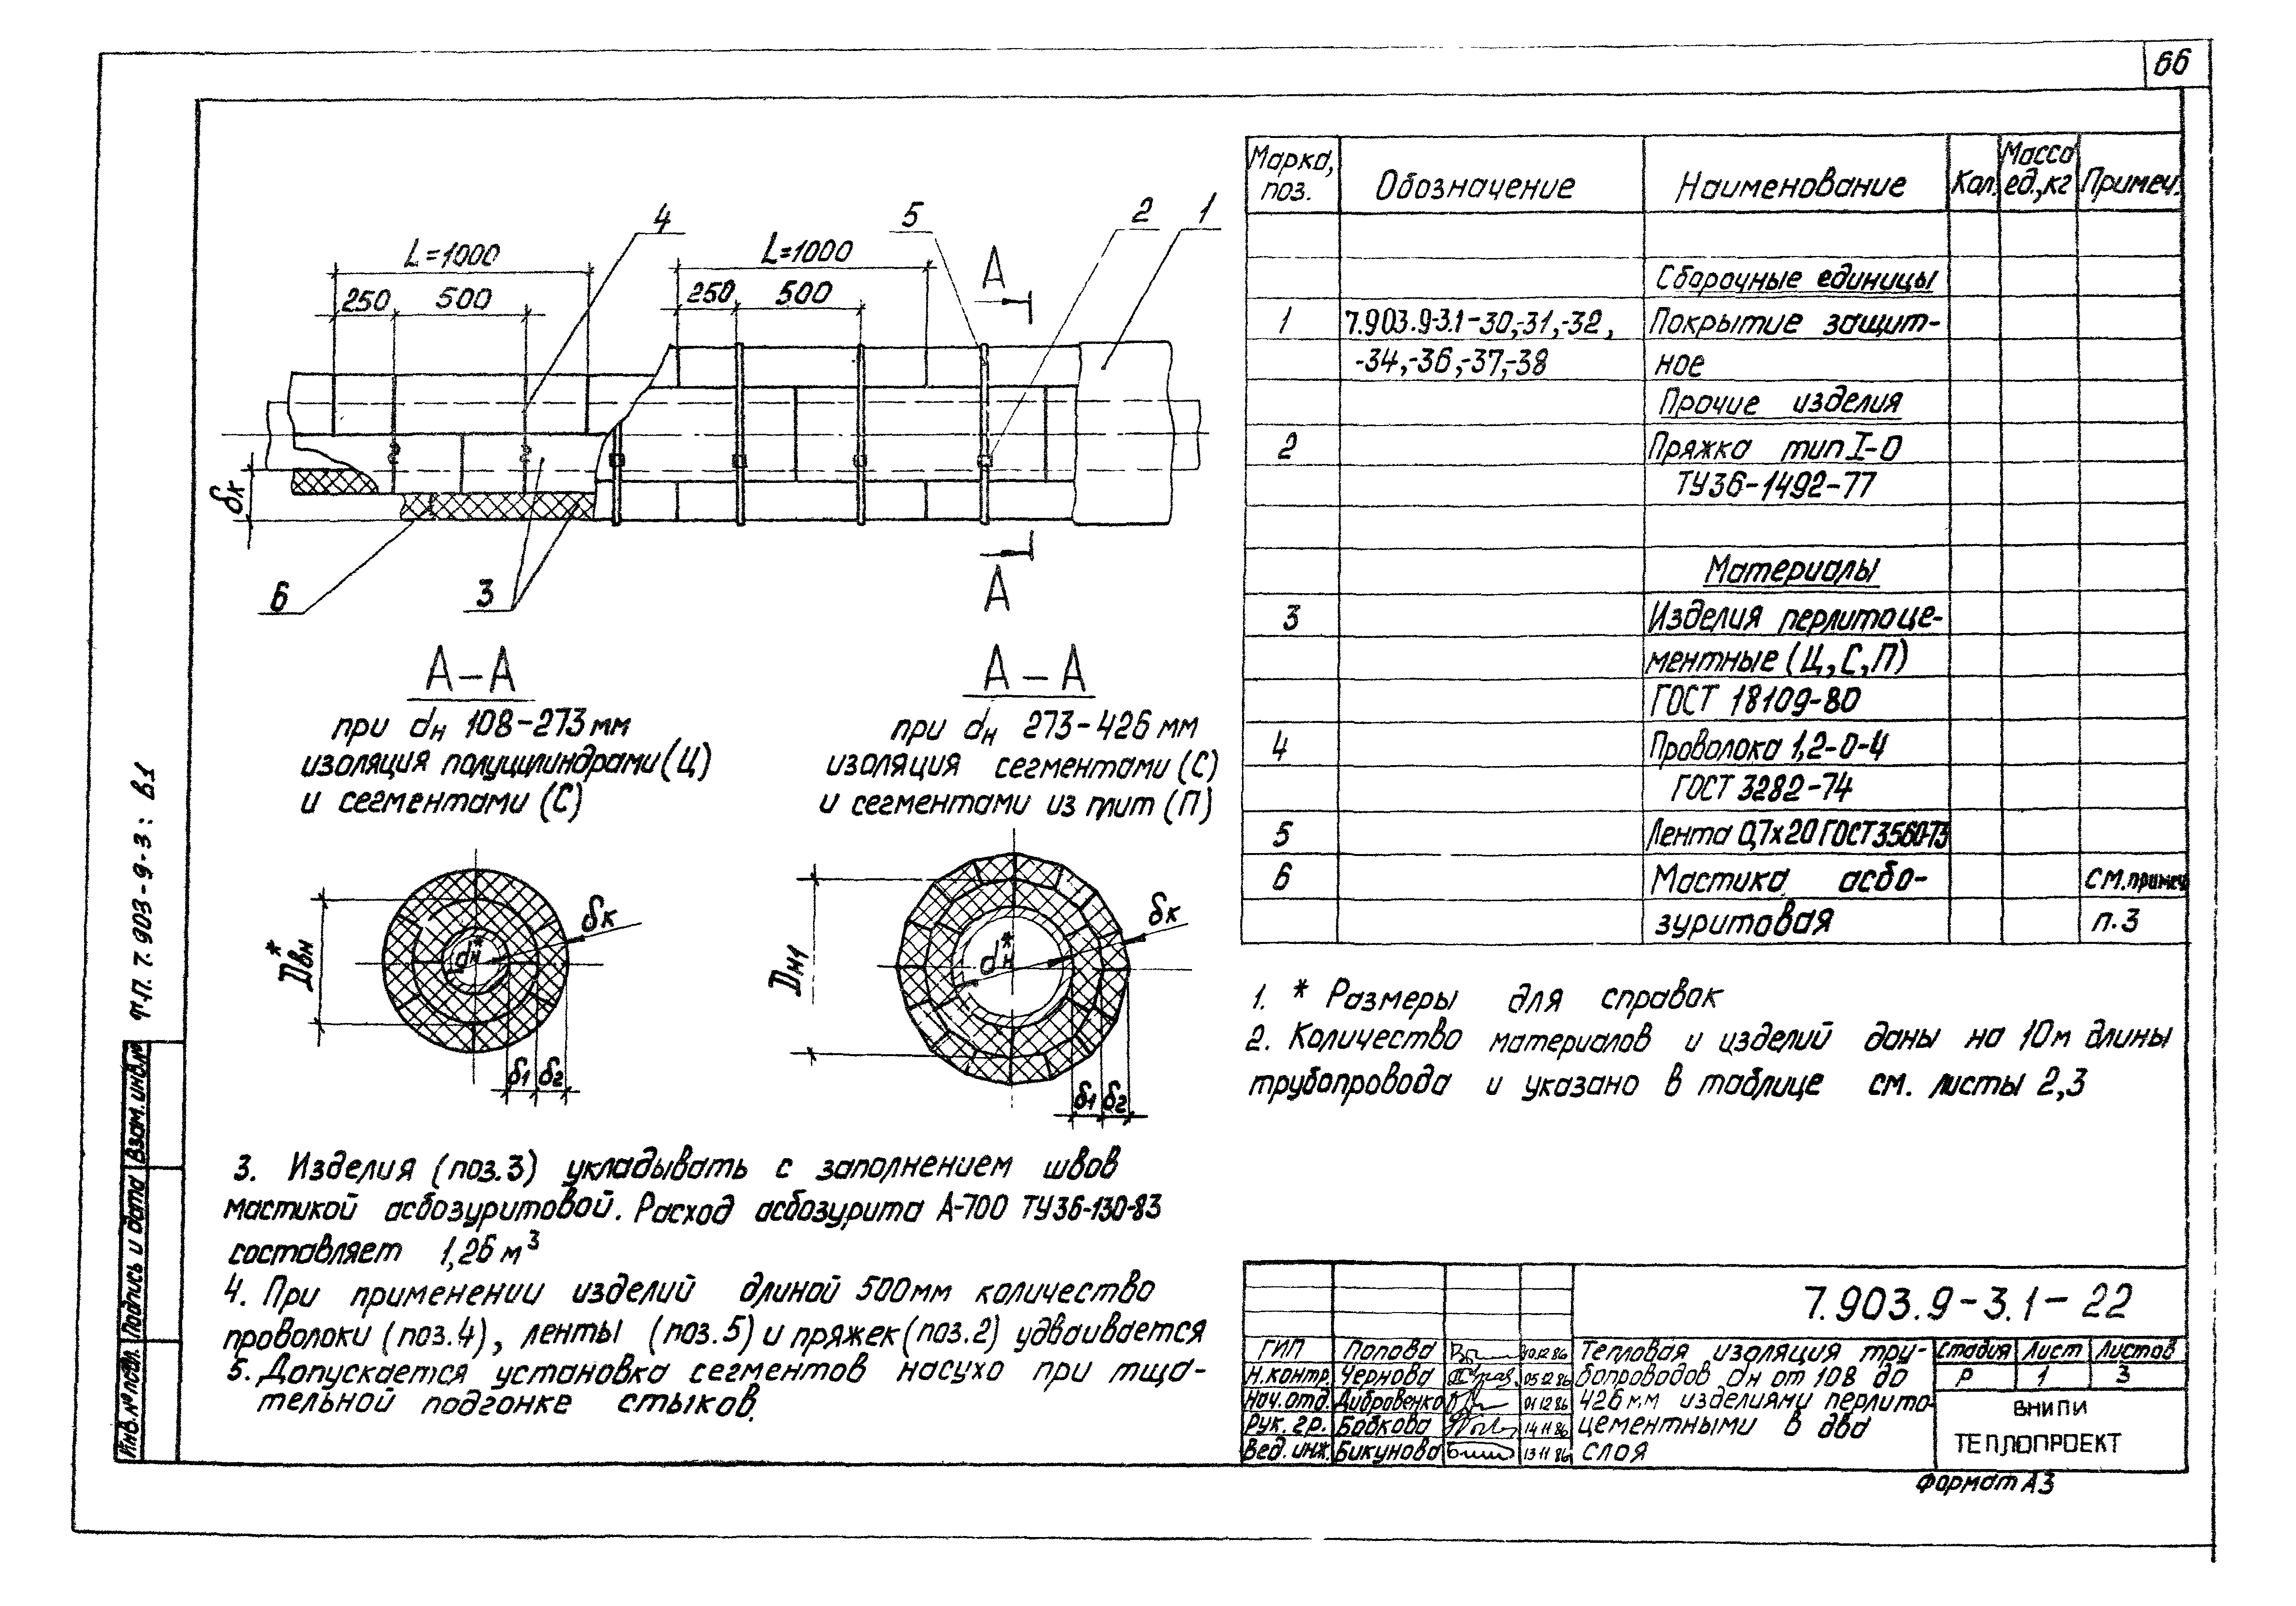 66
4
5
2
1
L=1000
L=1000
A
250
500
250
500
δк
6
3
A
А-А
при dн 108-273 мм
изоляция полуцилиндрами (Ц)
и сегментами (С)
А-А
при dн 273-426 мм
изоляция сегментами (С)
и сегментами из плит (П)
Dвн*
dн*
δк
δ1
δ2
Dн1
dн*
δк
δ1
δ2
Марка, поз.
Обозначение
Наименование
Кол.
Масса ед., кг
Примеч.
Сборочные единицы
1 7.903.9-3.1-30,-31,-32, Покрытие защит-
-34,-36,-37,-38 ное
Прочие изделия
2 Пряжка тип I-0
ТУ36-1492-77
Материалы
3 Изделия перлитоце-
ментные (Ц,С,П)
ГОСТ 18109-80
4 Проволока 1,2-0-4
ГОСТ 3282-74
5 Лента 0,7х20 ГОСТ3560-73
6 Мастика асбо- см.примеч
зуритовая п.3
1. * Размеры для справок
2. Количество материалов и изделий даны на 10м длины
трубопровода и указано в таблице см. листы 2,3
3. Изделия (поз.3) укладывать с заполнением швов
мастикой асбозуритовой. Расход асбозурита А-700 ТУ36-130-83
составляет 1,26 м³
4. При применении изделий длиной 500мм количество
проволоки (поз.4), ленты (поз.5) и пряжек (поз.2) удваивается
5. Допускается установка сегментов насухо при тща-
тельной подгонке стыков.
7.903.9-3.1-22
ГИП Попова 10.12.86
Н.контр. Чернова 05.12.86
Нач.отд. Дибровенко 01.12.86
Рук. гр. Бабкова 14.11.86
Вед. инж. Бикунова 13.11.86
Тепловая изоляция тру-
бопроводов dн от 108 до
426мм изделиями перлито-
цементными в два
слоя
Стадия Лист Листов
Р 1 3
ВНИПИ
ТЕПЛОПРОЕКТ
Формат А3
т.п. 7.903-9-3: в.1
Взам.инв.№
Подпись и дата
Инв.№ подл.